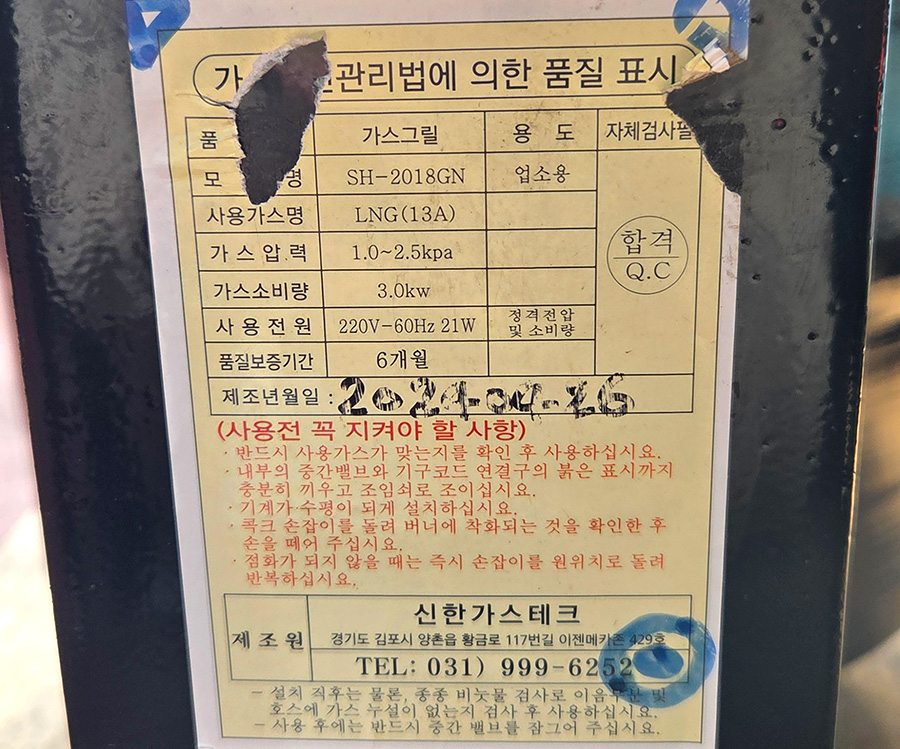 가 관리법에 의한 품질 표시
품 가스그릴 용 도 자체검사필
모 명 SH-2018GN 업소용
사용가스명 LNG(13A)
가 스 압 력 1.0~2.5kpa
합격
Q.C
가스소비량 3.0kw
사 용 전 원 220V-60Hz 21W 정격전압
및 소비량
품질보증기간 6개월
제조년월일 :
(사용전 꼭 지켜야 할 사항)
· 반드시 사용가스가 맞는지를 확인 후 사용하십시요.
· 내부의 중간밸브와 기구코드 연결구의 붉은 표시까지
충분히 끼우고 조임쇠로 조이십시요.
· 기계가 수평이 되게 설치하십시요.
· 콕크 손잡이를 돌려 버너에 착화되는 것을 확인한 후
손을 떼어 주십시요.
· 점화가 되지 않을 때는 즉시 손잡이를 원위치로 돌려
반복하십시요.
제 조 원
신한가스테크
경기도 김포시 양촌읍 황금로 117번길 이젠메카존 429호
TEL: 031) 999-6252
- 설치 직후는 물론, 종종 비눗물 검사로 이음부분 및
호스에 가스 누설이 없는지 검사 후 사용하십시요.
- 사용 후에는 반드시 중간 밸브를 잠그어 주십시요.